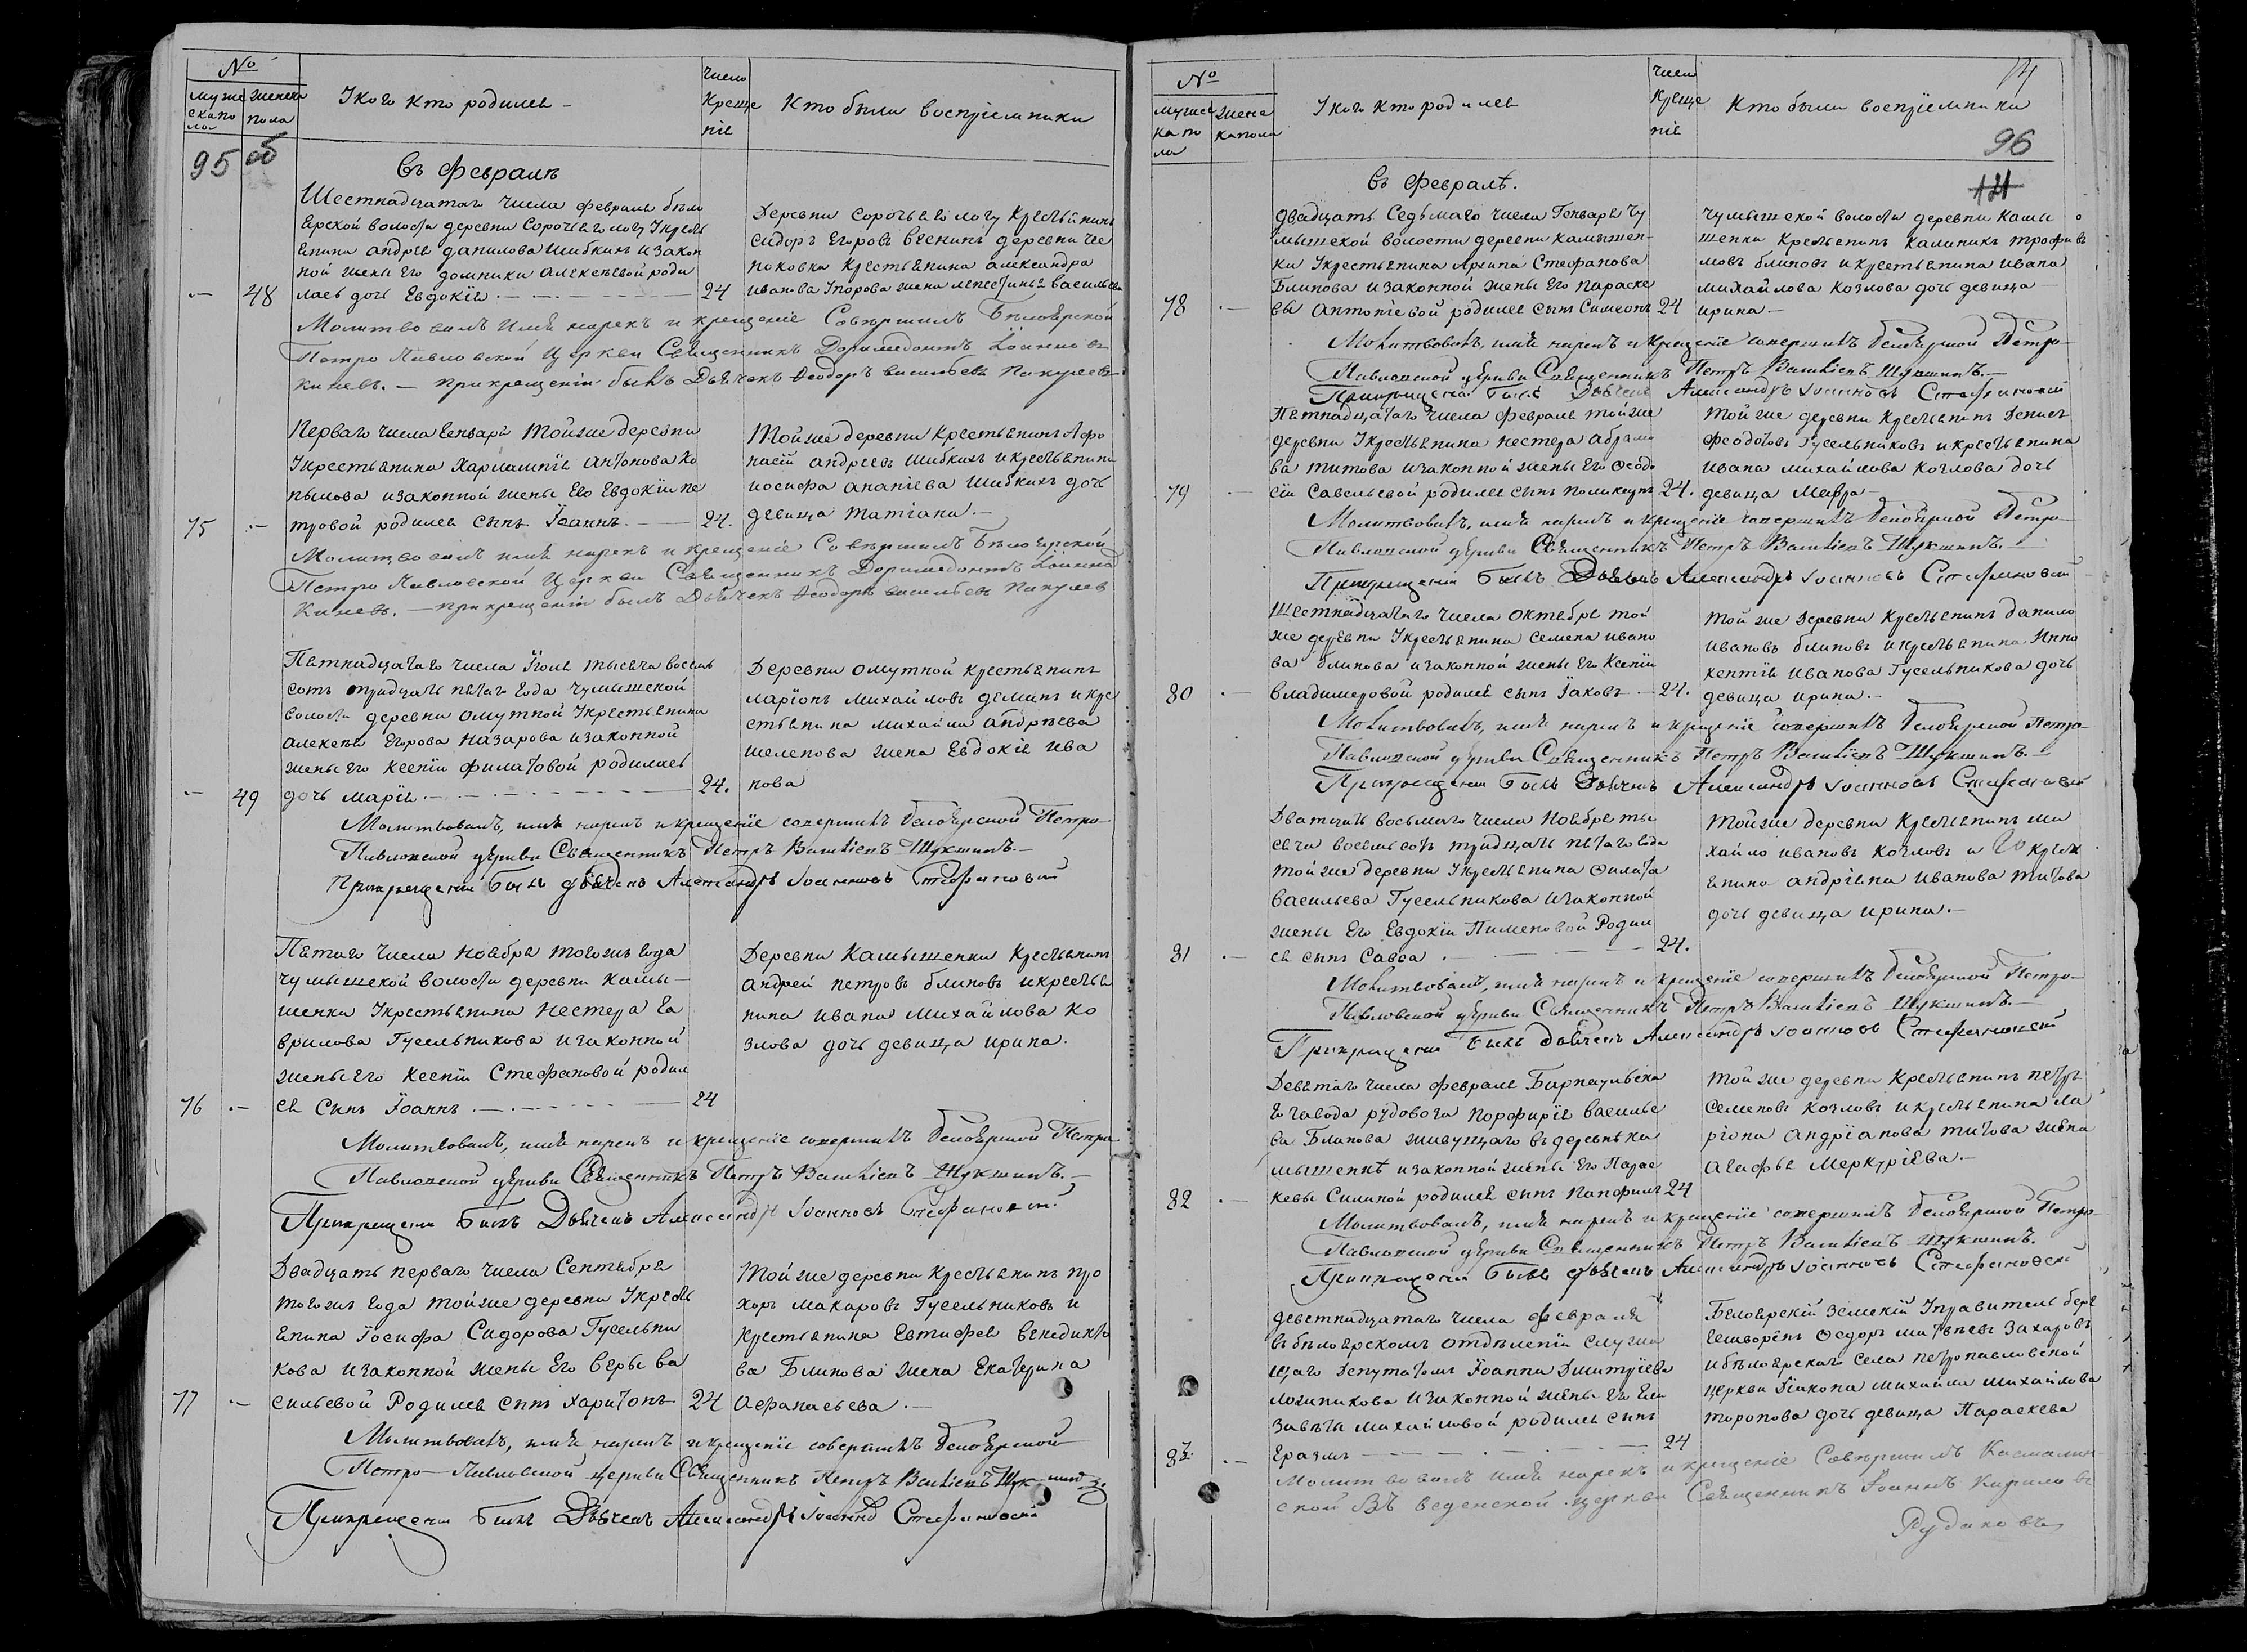 №
муже скапо ла
женска пола
У кого кто родился
число Креще нiе
Кто были воспрiемники
95 об
Въ февралѣ
Шестнадцатаго числа февраля бѣло
ярской волости деревни Сорочьего логу у крестья
янина андрея данилова шибкихъ и закон
ной жены его домники алексѣевой роди
48 лась дочь Евдокiя 24
Деревни Сорочьего логу Крестьянинъ
Сидоръ Егоровъ деревни Че
поковки Крестьянина александра
иванова жена васильева
Молитвовалъ имя нарекъ и крещенiе Совершилъ Бѣлоярской
Петро Павловской Церкви Священникъ Доримедонтъ Iоанновъ
Киневъ. — При крещенiи былъ Дьячекъ Феодоръ васильевъ
Перваго числа Генваря Той же деревни
У крестьянина Харлампiя Антонова Ко
пылова и законной жены Его Евдокiи пе
75 тровой родился сынъ Iоаннъ. 24.
Той же деревни Крестьянинъ Афо
насiй андреевъ шибкихъ и крестьянина
иосифа ананiева шибкихъ дочь
девица татiана.
Молитвовалъ имя нарекъ и крещенiе Совершилъ Бѣлоярской
Петро Павловской Церкви Священникъ Доримедонтъ Iоанновъ
Киневъ. — При крещенiи былъ Дьячекъ Феодоръ васильевъ
Пятнадцатаго числа Iюля тысяча восемь
сотъ тридцать пятаго года чумышской
волости деревни омутной У крестьянина
алексѣя Егорова Назарова и законной
жены его Ксенiи филатовой родилась
49 дочь марiя. 24.
Деревни омутной крестьянинъ
ларiонъ михайловъ деминъ и кре
стьянина михайла андрѣева
шелепова жена Евдокiя ива
нова
Молитвовалъ, имя нарекъ и крещенiе совершилъ Белоярской Петро-
Павловской церкви Священникъ Петръ Васильевъ Шукшинъ.
При крещенiи Былъ дьячекъ Александръ Iоанновъ Стефановскiй
Пятаго числа Ноября того же года
чумышской волости деревни Камы-
шенки У крестьянина Нестера Га
врилова Гусельникова и законной
жены его Ксенiи Стефановой родил
76 ся сынъ Iоаннъ. 24
Деревни Камышенки Крестьянинъ
андрей петровъ блиновъ и крестья
нина ивана михайлова Ко
злова дочь девица ирина.
Молитвовалъ, имя нарекъ и крещенiе совершилъ Белоярской Петро-
Павловской церкви Священникъ Петръ Васильевъ Шукшинъ.
При крещенiи Былъ Дьячекъ Александръ Iоанновъ Стефановскiй
Двадцать перваго числа Сентября
того же года той же деревни У кресть
янина Iосифа Сидорова Гусельни
кова и законной жены Его веры ва
77 сильевой Родился сынъ харитонъ 24
Той же деревни Крестьянинъ про
хоръ макаровъ Гусельниковъ и
крестьянина Евтифея венедикто
ва Блинова жена Екатерина
Афанасьева.
Молитвовалъ, имя нарекъ и крещенiе совершилъ Белоярской
Петро-Павловской церкви Священникъ Петръ Васильевъ Шукшинъ.
При крещенiи Былъ Дьячекъ Александръ Iоанновъ Стефановскiй
№
мужес ка по ла
женс ка пола
У кого кто родился
число Креще нiе
Кто были воспрiемники
14
96
121
Въ Февралѣ.
двадцать Седьмаго числа Генваря Чу
мышской волости деревни камышен-
ки У крестьянина Архипа Стефанова
Блинова и законной жены Его параске
78 вы Антонiевой родился сынъ Симеонъ 24
чумышской волости деревни камы
шенки Крестьянинъ Калиникъ трофи
мовъ блиновъ и крестьянина ивана
михайлова Козлова дочь девица
ирина.
Молитвовалъ, имя нарекъ и крещенiе совершилъ Белоярской Петро-
Павловской церкви Священникъ Петръ Васильевъ Шукшинъ.
При крещенiи Былъ Дьячекъ Александръ Iоанновъ Стефановскiй
Пятнадцатаго числа февраля той же
деревни У крестьянина нестера абрамо
ва титова и законной жены Его Феодо
79 сiи Савельевой родился сынъ поликарпъ 24.
Той же деревни Крестьянинъ Денисъ
Феодотовъ Гусельниковъ и крестьянина
ивана михайлова козлова дочь
девица Мавра
Молитвовалъ, имя нарекъ и крещенiе совершилъ Белоярской Петро-
Павловской церкви Священникъ Петръ Васильевъ Шукшинъ.
При крещенiи Былъ Дьячекъ Александръ Iоанновъ Стефановскiй
Шестнадцатаго числа октября той
же деревни У крестьянина семена ивано
ва блинова и законной жены Его Ксенiи
80 владимеровой родился сынъ Iаковъ 24.
Той же деревни Крестьянинъ данило
ивановъ блиновъ и крестьянина Инно
кентiя иванова Гусельникова дочь
девица ирина.
Молитвовалъ, имя нарекъ и крещенiе совершилъ Белоярской Петро-
Павловской церкви Священникъ Петръ Васильевъ Шукшинъ.
При крещенiи Былъ Дьячекъ Александръ Iоанновъ Стефановскiй
Дватцать восьмаго числа Ноября ты
сяча восемьсотъ тридцать пятаго года
той же деревни У крестьянина Филата
васильева Гусельникова и законной
жены Его Евдокiи Пименовой Родил
81 ся сынъ Савва. 24.
Той же деревни Крестьянинъ ми
хайло ивановъ козловъ и крест
янина андрiяна иванова титова
дочь девица ирина.
Молитвовалъ, имя нарекъ и крещенiе совершилъ Белоярской Петро-
Павловской церкви Священникъ Петръ Васильевъ Шукшинъ.
При крещенiи Былъ Дьячекъ Александръ Iоанновъ Стефановскiй
Девятаго числа февраля Барнаульска
го завода рудовоза Порфирiя василье
ва Блинова живущаго в деревнѣ ка
мышенкѣ и законной жены Его Парас
82 кевы Силиной родился сынъ Панфилъ 24
Той же деревни Крестьянинъ петръ
Семеновъ Козловъ и крестьянина ла
рiона Андрiанова титова жена
агафья Меркурiева.
Молитвовалъ, имя нарекъ и крещенiе совершилъ Белоярской Петро-
Павловской церкви Священникъ Петръ Васильевъ Шукшинъ.
При крещенiи Былъ дьячекъ Александръ Iоанновъ Стефановскiй
девятнадцатаго числа февраля
в бѣлоярскомъ отдѣленiи служа
щаго Депутатомъ Iоанна Дмитрiева
Логиникова и законной жены Его Ели
заветы михайловой родился сынъ
83 Еразмъ 24
Белоярскiй Земскiй Управитель берг
гешворенъ Федоръ матвѣевъ Захаровъ
и бѣлоярскаго села петропавловской
церкви дiакона михайла михайлова
торопова дочь девица Параскева
Молитвовалъ имя нарекъ и крещенiе Совершилъ Касмалин
ской Введенской церкви Священникъ Iоаннъ Кириловъ
Рудаковъ